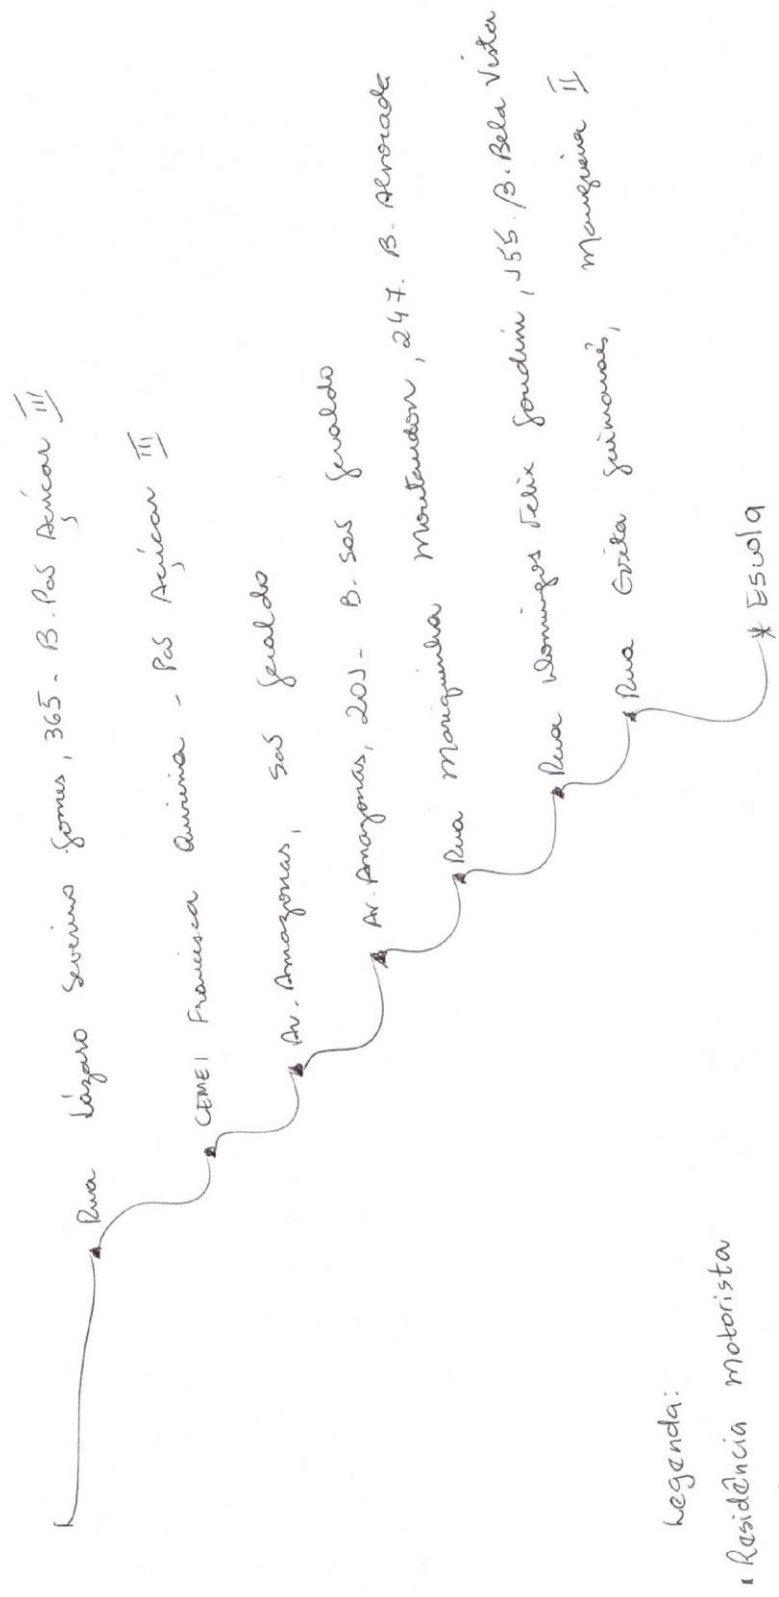 Rua Lázaro Severino Gomes, 365 - B. Pão Açúcar III
CEMEI Francisca Quirina - Pão Açúcar III
Av. Amazonas, São Geraldo
Av. Amazonas, 201 - B. São Geraldo
Rua Mariquinha Montandon, 247. B. Alvorada
Rua Domingos Felix Gondim, 155. B. Bela Vista
Rua Guimarães, Mangueira II
* Escola
Legenda:
Residência motorista